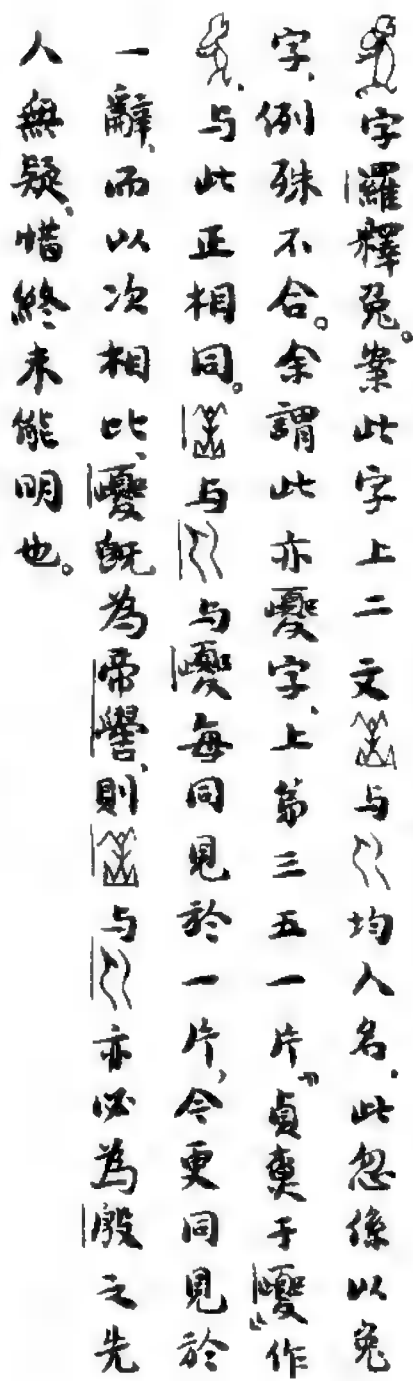 字羅釋兔。案此字上二文与均人名，此忽係以兔
字，例殊不合。余謂此亦夒字，上第三五一片「貞㷼于夒」作
，与此正相同。与与夒每同見於一片，今更同見於
一辭，而以次相比，夒既為帝嚳，則与亦必為殷之先
人無疑，惜終未能明也。